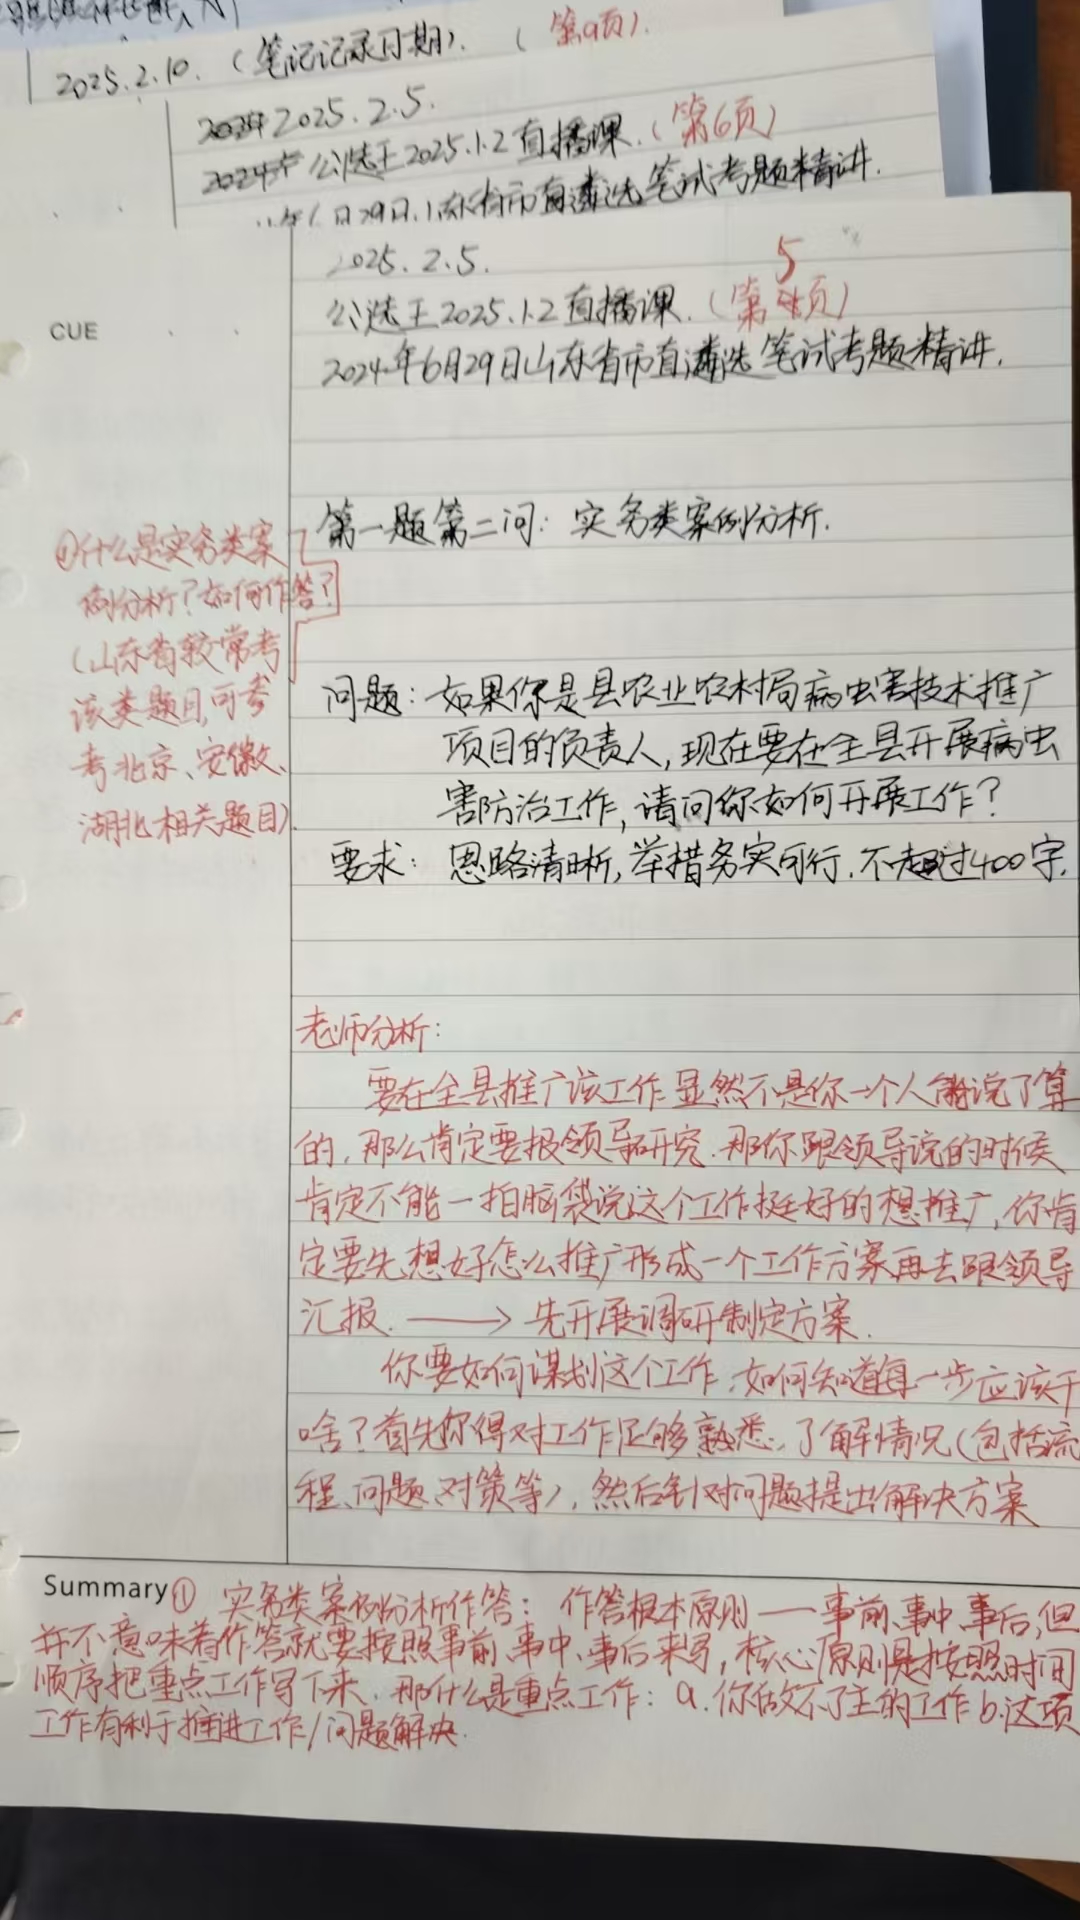 2025.2.10.（笔记记录日期）.（第9页）.
2025.2.5.
公选王2025.1.2直播课.（第6页）
日29日山东省市直遴选笔试考题精讲.
2025.2.5.
公选王2025.1.2直播课.（第5页）
2024年6月29日山东省市直遴选笔试考题精讲.
CUE
第一题第二问：实务类案例分析.
①什么是实务类案
例分析？如何作答？
（山东省较常考
该类题目,可参
考北京、安徽、
湖北相关题目）.
问题：如果你是县农业农村局病虫害技术推广
项目的负责人,现在要在全县开展病虫
害防治工作,请问你如何开展工作？
要求：思路清晰,举措务实可行.不超过400字.
老师分析：
要在全县推广该工作显然不是你一个人能说了算
的.那么肯定要报领导研究.那你跟领导说的时候
肯定不能一拍脑袋说这个工作挺好的想推广,你肯
定要先想好怎么推广形成一个工作方案再去跟领导
汇报.——→先开展调研制定方案.
你要如何谋划这个工作,如何知道每一步应该干
啥？首先你得对工作足够熟悉,了解情况（包括流
程、问题、对策等）,然后针对问题提出解决方案
Summary① 实务类案例分析作答：作答根本原则——事前、事中、事后,但
并不意味着作答就要按照事前、事中、事后来写,核心原则是按照时间
顺序把重点工作写下来.那什么是重点工作：a.你做不了主的工作b.这项
工作有利于推进工作/问题解决.